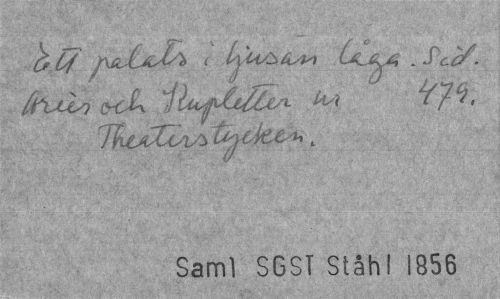 Ett palats i ljusan låga. Sid.
Arier och Kupletter ur 479.
Theaterstycken.
Saml SGST Ståhl 1856